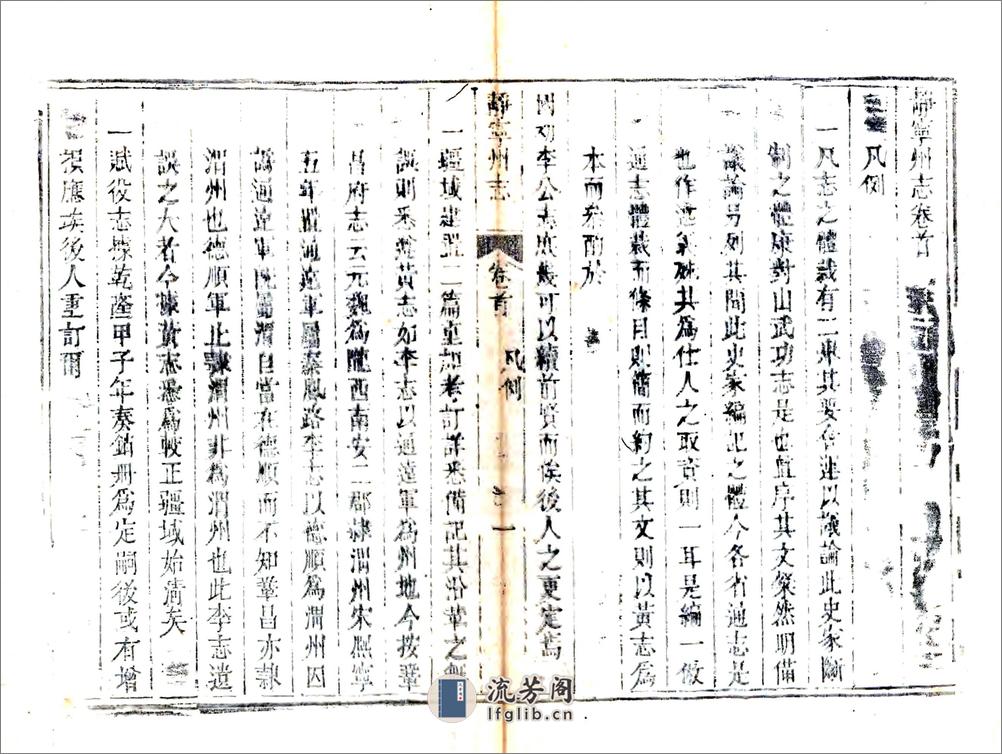 靜寧州志卷首
凡例
一凡志之體裁有二東其要會連以議論此史家斷
制之體康對山武功志是也直序其文粲然明備
議論另列其間此史家編記之體今各省通志是
也作法其為仕人之取資則一耳是編一倣
通志體裁而條目則簡而約之其文則以黃志為
本而參酌於
李公志庶幾可以續前賢而俟後人之更定焉
靜寧州志
卷首
凡例
一
一疆域建置二篇重加考訂詳悉備記其沿革之
誤則悉遵黃志如李志以通遠軍為州地今按鞏
昌府志云元魏為隴西南安二郡隸渭州宋熙寧
五年置通遠軍屬秦鳳路李志以德順為渭州因
謂通遠軍既屬渭自當在德順而不知鞏昌亦隸
渭州也德順軍止隸渭州非為渭州也此李志遺
誤之大者今據黃志悉為較正疆域始清矣
一賦役志據乾隆甲子年奏銷冊為定嗣後或有增
損應俟後人重訂爾
流芳阁
lfglib.cn